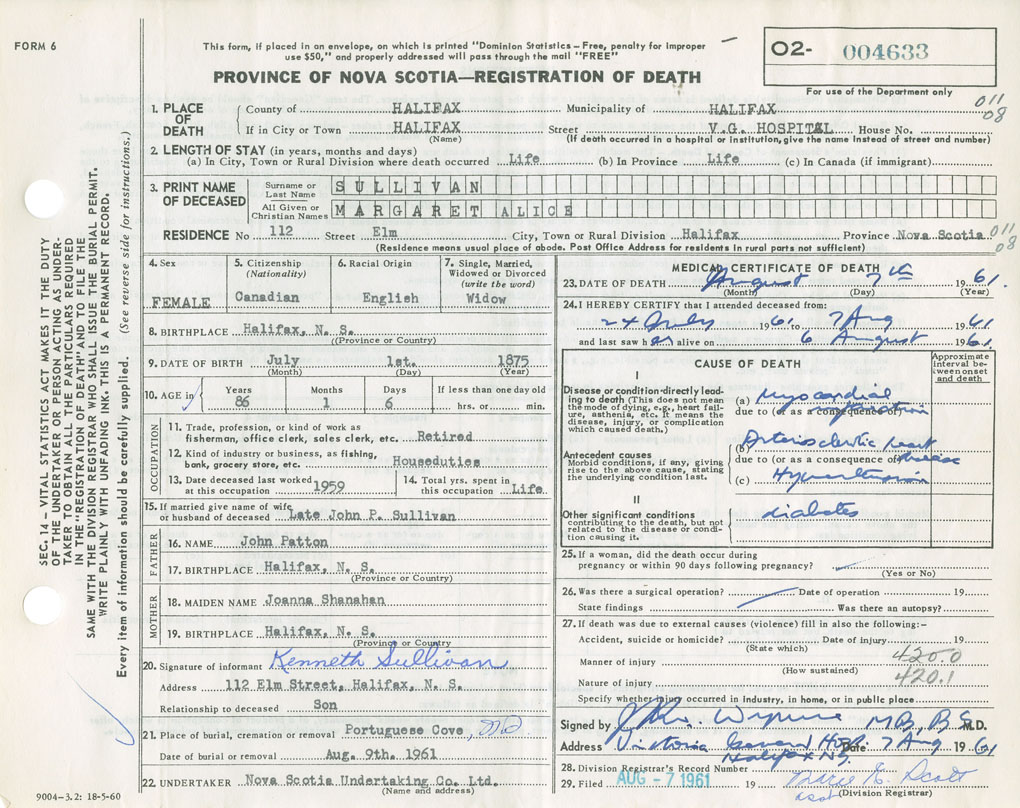 FORM 6
This form, if placed in an envelope, on which is printed "Dominion Statistics – Free, penalty for improper
use $50," and properly addressed will pass through the mail "FREE"
PROVINCE OF NOVA SCOTIA—REGISTRATION OF DEATH
O2- 004633
For use of the Department only
SEC. 14 – VITAL STATISTICS ACT MAKES IT THE DUTY
OF THE UNDERTAKER OR PERSON ACTING AS UNDER-
TAKER TO OBTAIN ALL THE PARTICULARS REQUIRED
IN THE "REGISTRATION OF DEATH" AND TO FILE THE
SAME WITH THE DIVISION REGISTRAR WHO SHALL ISSUE THE BURIAL PERMIT.
WRITE PLAINLY WITH UNFADING INK. THIS IS A PERMANENT RECORD.
Every item of information should be carefully supplied. (See reverse side for instructions.)
1. PLACE OF DEATH
County of HALIFAX Municipality of HALIFAX
011
08
If in City or Town HALIFAX Street V.G. HOSPITAL House No.
(Name) (If death occurred in a hospital or institution, give name instead of street and number)
2. LENGTH OF STAY (in years, months and days)
(a) In City, Town or Rural Division where death occurred Life (b) In Province Life (c) In Canada (if immigrant)
3. PRINT NAME OF DECEASED
Surname or Last Name SULLIVAN
All Given or Christian Names MARGARET ALICE
RESIDENCE No 112 Street Elm City, Town or Rural Division Halifax Province Nova Scotia
011
08
(Residence means usual place of abode. Post Office Address for residents in rural parts not sufficient)
4. Sex
FEMALE
5. Citizenship
(Nationality)
Canadian
6. Racial Origin
English
7. Single, Married,
Widowed or Divorced
(write the word)
Widow
8. BIRTHPLACE Halifax, N. S.
(Province or Country)
9. DATE OF BIRTH July 1st. 1875
(Month) (Day) (Year)
10. AGE in
Years 86
Months 1
Days 6
If less than one day old
hrs. or min.
OCCUPATION
11. Trade, profession, or kind of work as
fisherman, office clerk, sales clerk, etc. Retired
12. Kind of industry or business, as fishing,
bank, grocery store, etc. Houseduties
13. Date deceased last worked
at this occupation 1959
14. Total yrs. spent in
this occupation Life
15. If married give name of wife
or husband of deceased Late John P. Sullivan
FATHER
16. NAME John Patton
17. BIRTHPLACE Halifax, N. S.
(Province or Country)
MOTHER
18. MAIDEN NAME Joanna Shanahan
19. BIRTHPLACE Halifax, N. S.
(Province or Country)
20. Signature of informant Kenneth Sullivan
Address 112 Elm Street, Halifax, N. S.
Relationship to deceased Son
21. Place of burial, cremation or removal Portuguese Cove,
Date of burial or removal Aug. 9th. 1961
22. UNDERTAKER Nova Scotia Undertaking Co. Ltd.
(Name and address)
9004-3.2: 18-5-60
MEDICAL CERTIFICATE OF DEATH
23. DATE OF DEATH August 7th 1961.
(Month) (Day) (Year)
24. I HEREBY CERTIFY that I attended deceased from:
24 July 1961 to 7 Aug 1961
and last saw her alive on 6 August 1961.
CAUSE OF DEATH
Approximate
interval be-
tween onset
and death
I
Disease or condition directly lead-
ing to death (This does not mean
the mode of dying, e.g., heart fail-
ure, asthenia, etc. It means the
disease, injury, or complication
which caused death.)
(a) Myocardial
due to (or as a consequence of)
infarction
Antecedent causes
Morbid conditions, if any, giving
rise to the above cause, stating
the underlying condition last.
(b) Arteriosclerotic heart
due to (or as a consequence of) disease
(c) Hypertension
II
Other significant conditions
contributing to the death, but not
related to the disease or condi-
tion causing it.
diabetes
25. If a woman, did the death occur during
pregnancy or within 90 days following pregnancy?
(Yes or No)
26. Was there a surgical operation? Date of operation 19
State findings Was there an autopsy?
27. If death was due to external causes (violence) fill in also the following:-
Accident, suicide or homicide? Date of injury 19
(State which)
Manner of injury 420.0
(How sustained)
Nature of injury 420.1
Specify whether injury occurred in industry, in home, or in public place
Signed by M.B, B.S. M.D.
Address Victoria General Hosp. Date 7 Aug 1961
Halifax NS.
28. Division Registrar's Record Number
29. Filed AUG - 7 1961 19 Marie E. Scott
(Division Registrar)